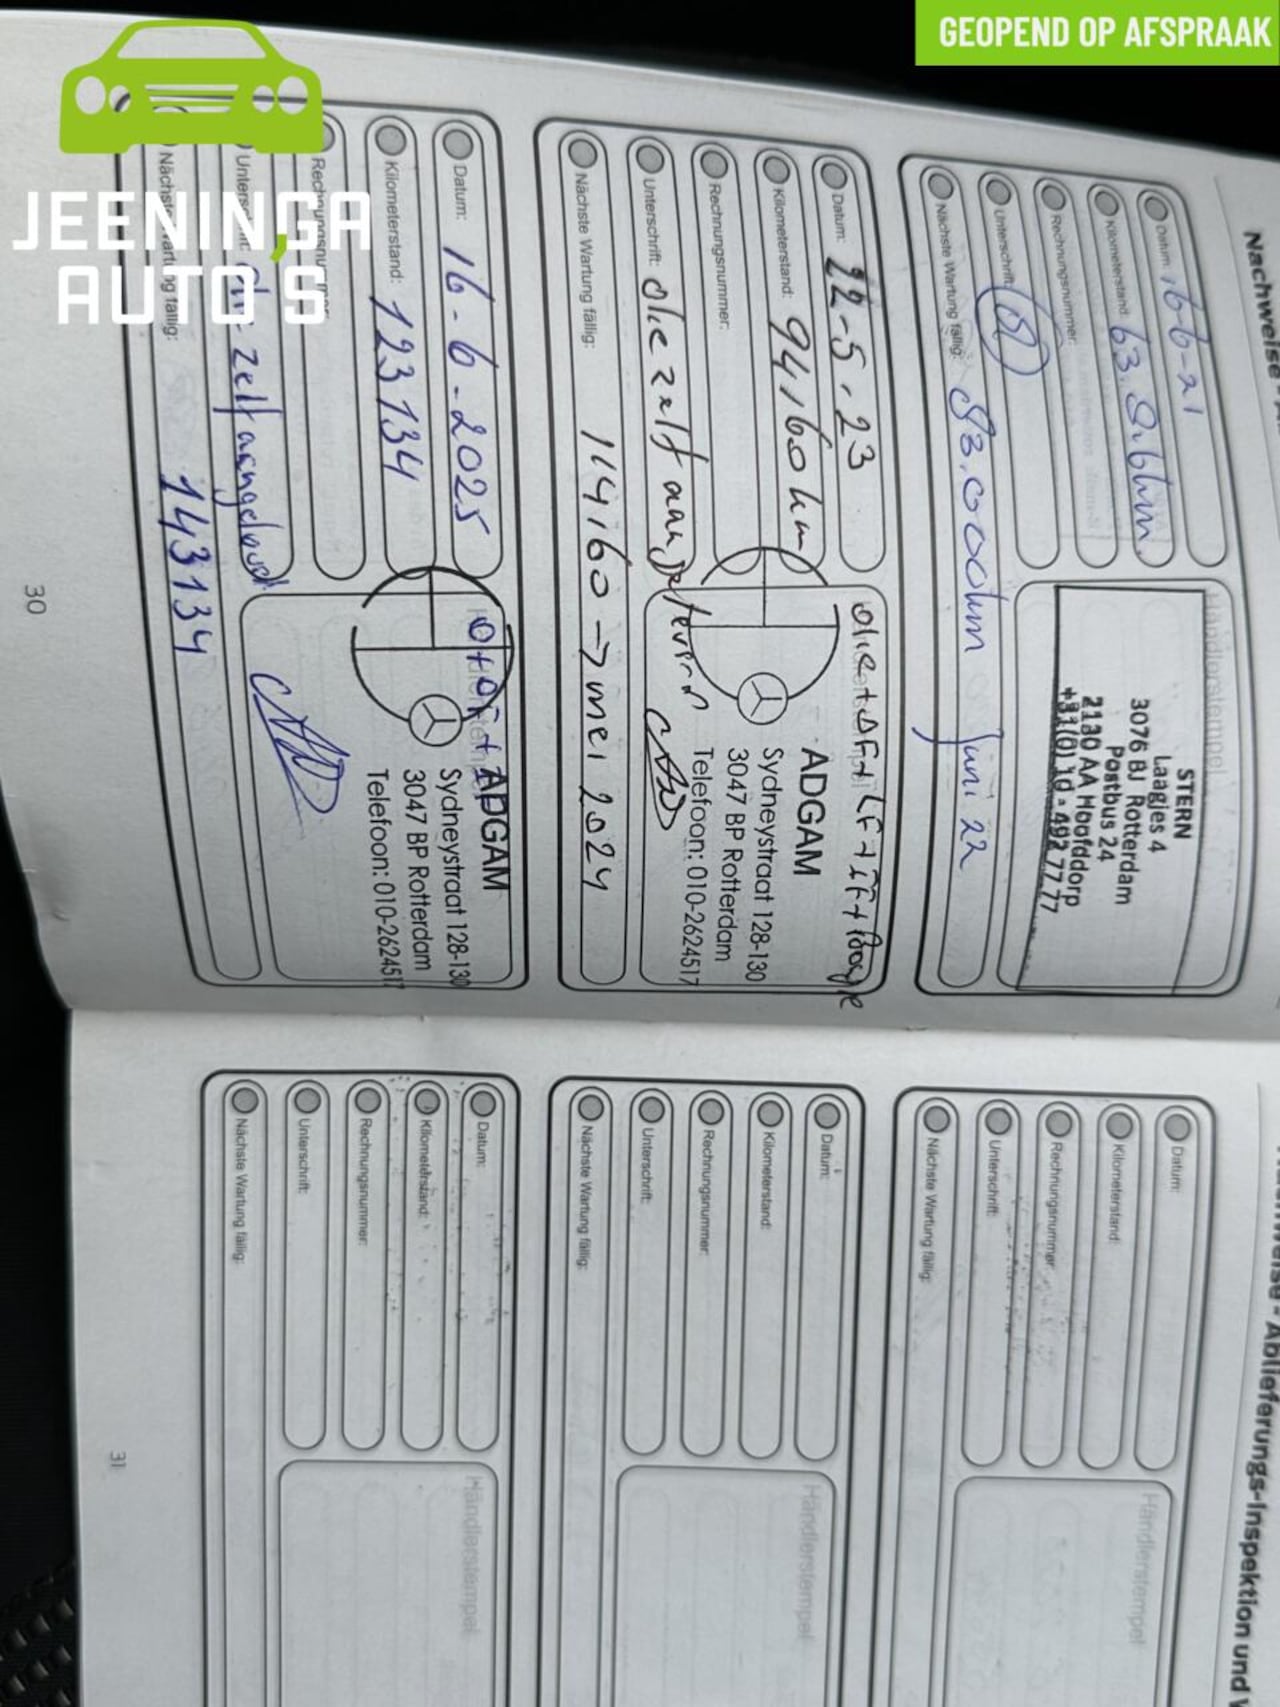 GEOPEND OP AFSPRAAK
JEENINGA
AUTO'S
Nachweise
Datum: 16-6-21
Kilometerstand: 63.816km.
Rechnungsnummer:
Unterschrift:
Nächste Wartung fällig: 83.000km Juni 22
Händlerstempel
STERN
Laagjes 4
3076 BJ Rotterdam
Postbus 24
2130 AA Hoofddorp
+31(0)10-492 77 77
Datum: 22-5-23
Kilometerstand: 94160 km
Rechnungsnummer:
Unterschrift: olie zelf aan
Nächste Wartung fällig: 114160 → mei 2024
olie + OF + LF + IF +
ADGAM
Sydneystraat 128-130
3047 BP Rotterdam
Telefoon: 010-2624517
Datum: 16-6-2025
Kilometerstand: 123134
Rechnungsnummer:
Unterschrift: olie zelf aangeleverd
Nächste Wartung fällig: 143134
O + OF +
ADGAM
Sydneystraat 128-130
3047 BP Rotterdam
Telefoon: 010-2624517
30
Nachweise - Ablieferungs-Inspektion und
Datum:
Kilometerstand:
Rechnungsnummer:
Unterschrift:
Nächste Wartung fällig:
Händlerstempel
Datum:
Kilometerstand:
Rechnungsnummer:
Unterschrift:
Nächste Wartung fällig:
Händlerstempel
Datum:
Kilometerstand:
Rechnungsnummer:
Unterschrift:
Nächste Wartung fällig:
Händlerstempel
31